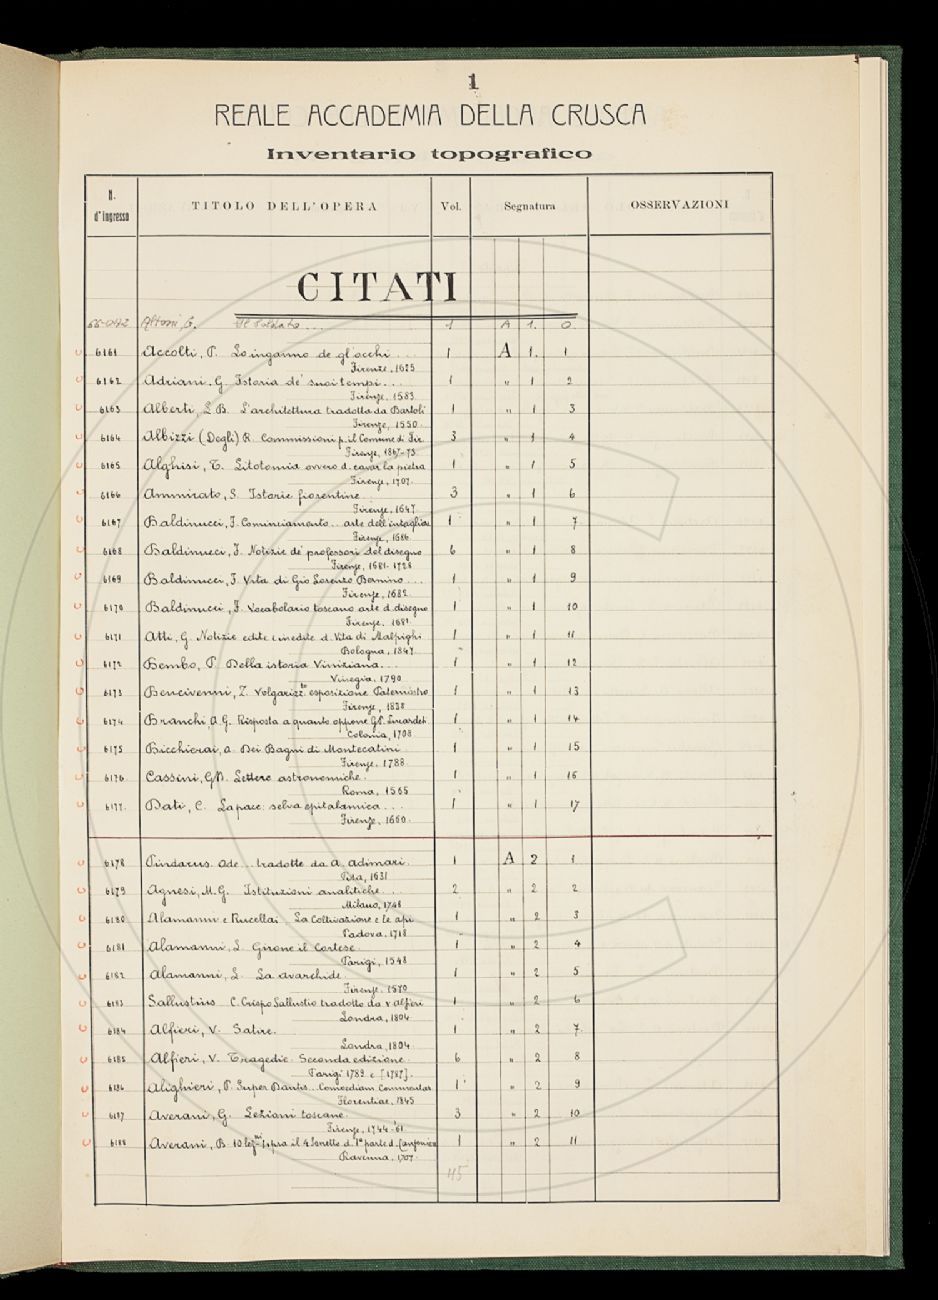 1
REALE ACCADEMIA DELLA CRUSCA
Inventario topografico
N. d'ingresso TITOLO DELL'OPERA Vol. Segnatura OSSERVAZIONI
CITATI
Altoni, G. Il Soldato ... 1 A 1. 0.
6161 Accolti, P. Lo inganno de gl'occhi ... 1 A 1. 1
Firenze, 1625
6162 Adriani, G. Istoria de' suoi tempi ... 1 " 1 2
Firenze, 1583
6163 Alberti, L.B. L'architettura tradotta da Bartoli 1 " 1 3
Firenze, 1550
6164 Albizzi (Degli) R. Commissioni p. il Comune di Fir. 3 " 1 4
Firenze, 1867-73
6165 Alghisi, T. Litotomia ovvero d. cavar la pietra 1 " 1 5
Firenze, 1707.
6166 Ammirato, S. Istorie fiorentine. 3 " 1 6
Firenze, 1647
6167 Baldinucci, F. Cominciamento .. arte dell'intagliar 1 " 1 7
Firenze, 1686.
6168 Baldinucci, F. Notizie de' professori del disegno 6 " 1 8
Firenze, 1681-1728
6169 Baldinucci, F. Vita di Gio Lorenzo Bernino ... 1 " 1 9
Firenze, 1682.
6170 Baldinucci, F. Vocabolario toscano arte d. disegno 1 " 1 10
Firenze, 1681.
6171 Atti, G. Notizie edite e inedite d. Vita di Malpighi 1 " 1 11
Bologna, 1847
6172 Bembo, P. Della istoria Viniziana ... 1 " 1 12
Vinegia, 1790
6173 Bencivenni, Z. Volgarizz.to esposizione Paternostro 1 " 1 13
Firenze, 1828
6174 Branchi, A.G. Risposta a quanto oppone G.P. Lucardesi 1 " 1 14
Colonia, 1708
6175 Bicchierai, A. Dei Bagni di Montecatini 1 " 1 15
Firenze, 1788.
6176 Cassini, G.D. Lettere astronomiche. 1 " 1 16
Roma, 1665
6177. Dati, C. La pace: selva epitalamica ... 1 " 1 17
Firenze, 1660.
6178 Pindarus. Ode ... tradotte da A. Adimari. 1 A 2 1
Pisa, 1631
6179 Agnesi, M.G. Istituzioni analitiche ... 2 " 2 2
Milano, 1748
6180 Alamanni e Rucellai La Coltivazione e le api 1 " 2 3
Padova, 1718
6181 Alamanni, L. Girone il Cortese. 1 " 2 4
Parigi, 1548
6182 Alamanni, L. La avarchide. 1 " 2 5
Firenze, 1570
6183 Sallustius C. Crispo Sallustio tradotto da V. Alfieri 1 " 2 6
Londra, 1804.
6184 Alfieri, V. Satire. 1 " 2 7.
Londra, 1804
6185 Alfieri, V. Tragedie. Seconda edizione. 6 " 2 8
Parigi 1789 e [1787].
6186 Alighieri, P. Super Dantis .. Comoediam Commentar. 1 " 2 9
Florentiae, 1845
6187 Averani, G. Lezioni toscane. 3 " 2 10
Firenze, 1744-61
6188 Averani, B. 10 lez.ni sopra il 4 sonetto d. 1a parte d. Canzoniere 1 " 2 11
Ravenna, 1707.
45